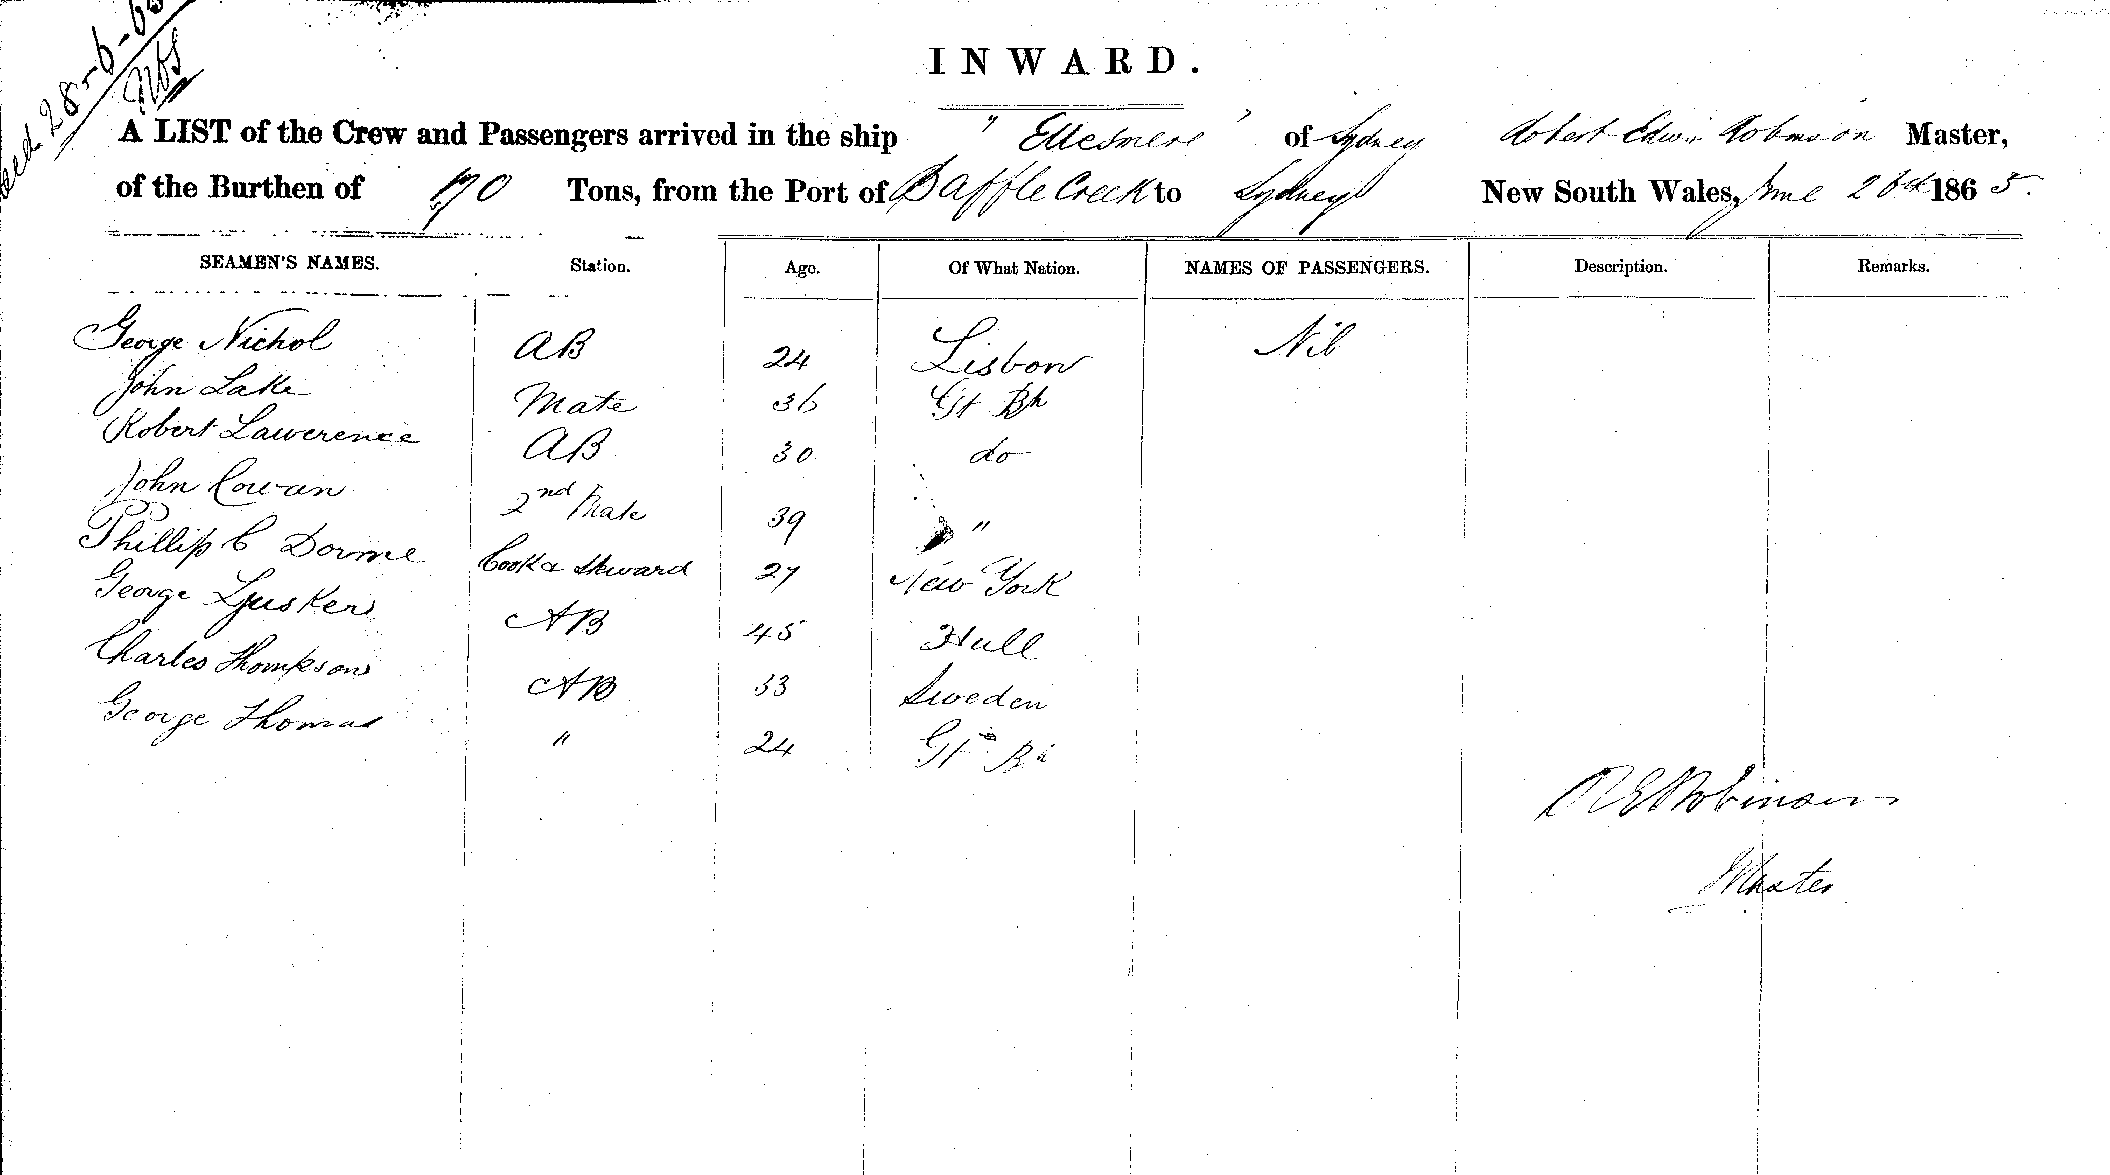 28-6-65
INWARD.
A LIST of the Crew and Passengers arrived in the ship "Ellesmere" of Sydney Robert Edwin Robinson Master,
of the Burthen of 190 Tons, from the Port of Baffle Creek to Sydney New South Wales, June 26th 1865.
SEAMEN'S NAMES. Station. Age. Of What Nation. NAMES OF PASSENGERS. Description. Remarks.
George Nichol AB 24 Lisbon Nil
John Lake Mate 36 Gt Bn
Robert Lawerence AB 30 do
John Cowan 2nd Mate 39 "
Phillip C Dorme Cook & Steward 27 New York
George AB 45 Hull
Charles Thompson AB 33 Sweden
George Thomas " 24 Gt Bn
R E Robinson
Master